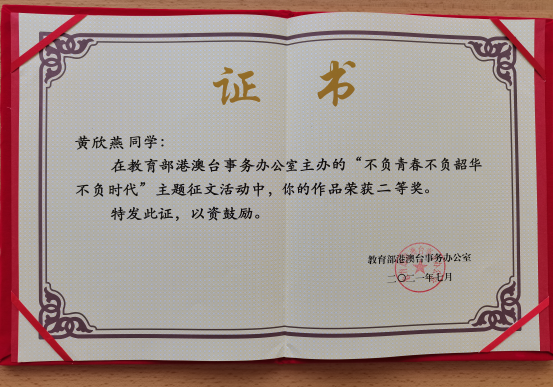 证书
黄欣燕同学：
在教育部港澳台事务办公室主办的“不负青春不负韶华
不负时代”主题征文活动中，你的作品荣获二等奖。
特发此证，以资鼓励。
教育部港澳台事务办公室
二〇二一年七月